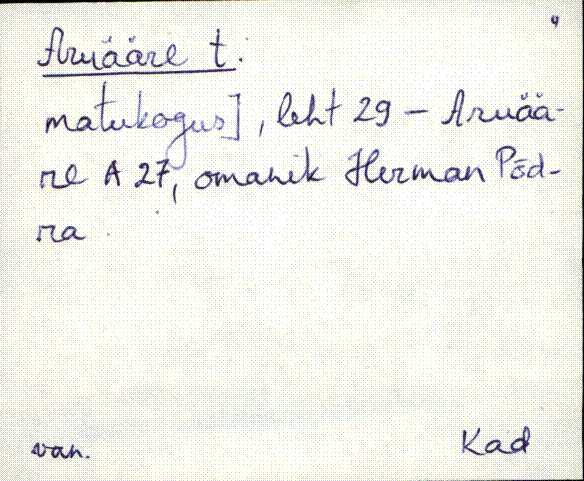 4
Aruääre t.
matukogus], leht 29 – Aruää-
re A 27, omanik Herman Põd-
ra
van.
Kad